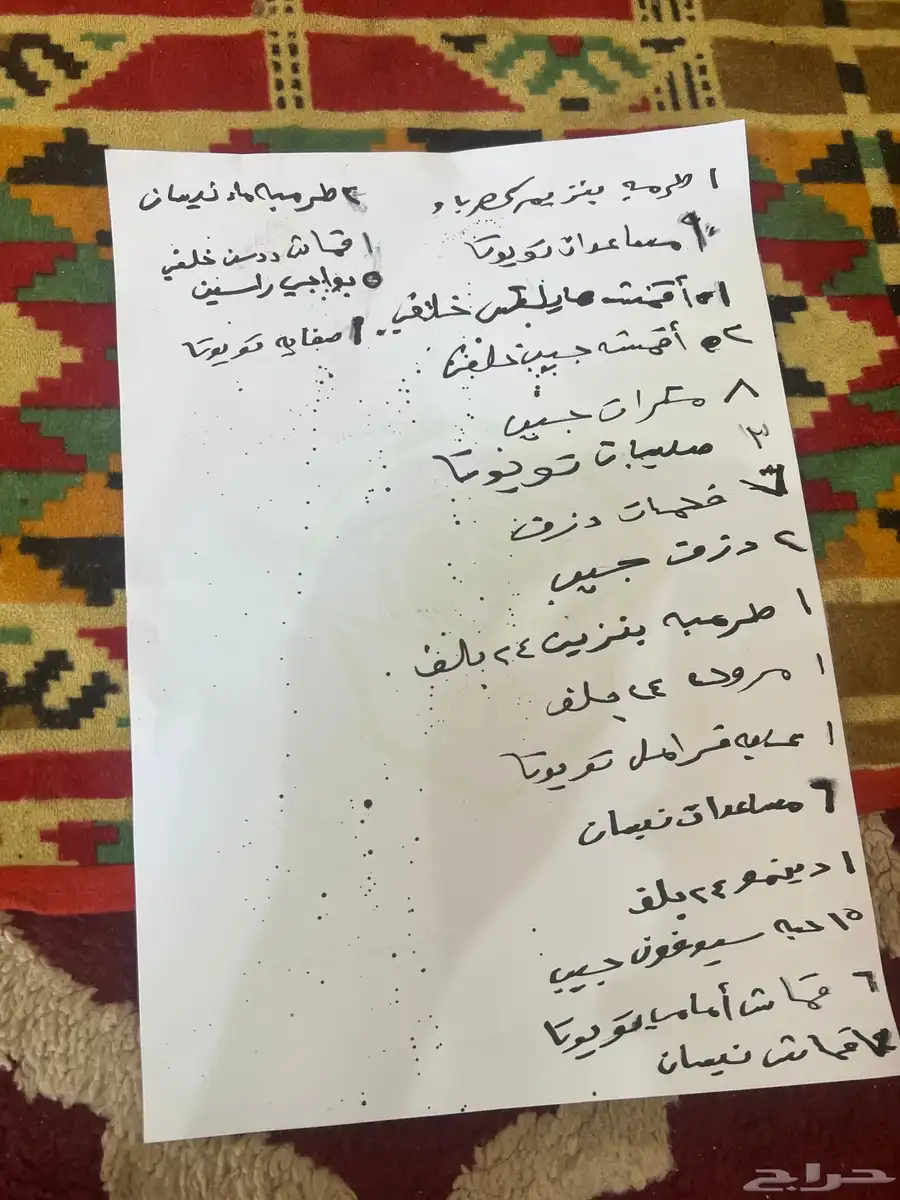 ١ طرمبه بنزين كهرباء
مساعدات تويوتا
أقمشه هايلكس خلفي
٢ أقمشه جيب خلفي
٨ مكرات جيب
٣ صليبات تويوتا
فحمات دزق
٢ دزق جيب
١ طرمبه بنزين ٢٤ بلف
١ مروحه ٢٤ بلف
١ علبه فرامل تويوتا
٦ مساعدات نيسان
١ دينمو ٢٤ بلف
١٥ حبه سيوفون جيب
٦ قماش أماميه تويوتا
قماش نيسان
٢ طرمبه ماء نيسان
١ قماش ددسن خلفي
٥ بواجي راسين
١ صفايه تويوتا
حراج